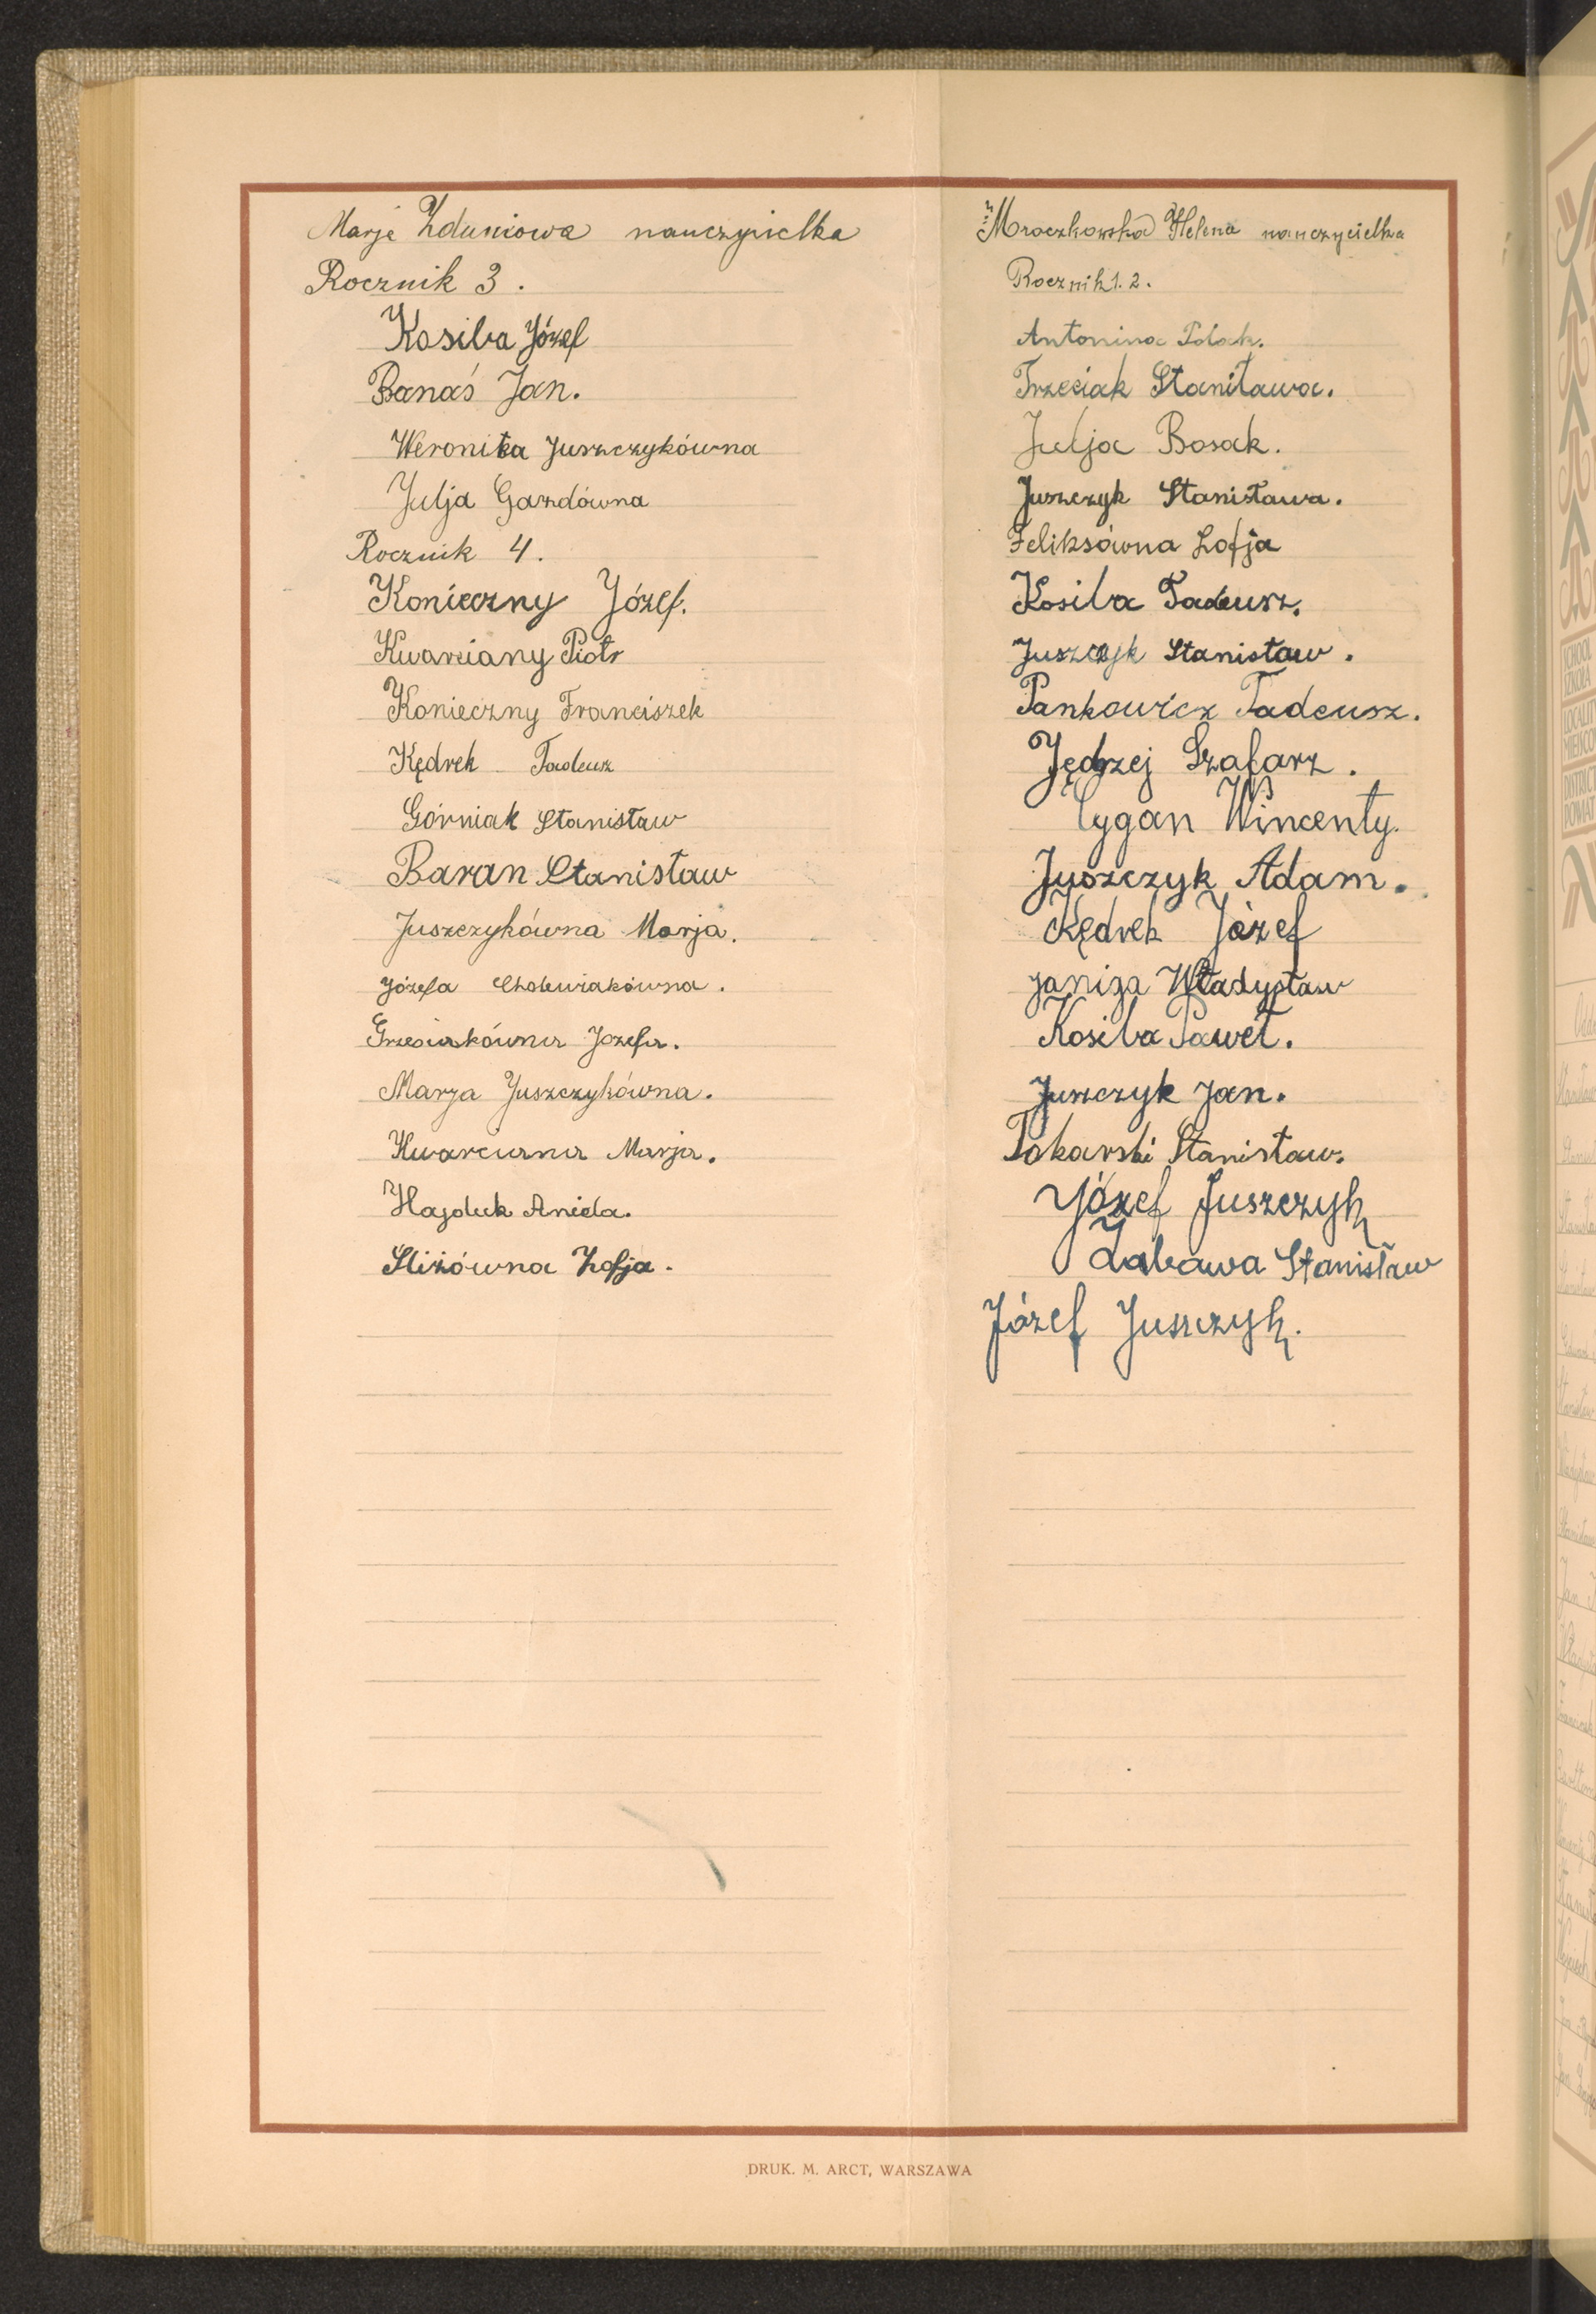 Marja Zduniowa nauczycielka
Rocznik 3.
Kosiba Józef
Banaś Jan.
Weronika Juszczykówna
Julja Gazdówna
Rocznik 4.
Konieczny Józef.
Kwarciany Piotr
Konieczny Franciszek
Kędrek Tadeusz
Górniak Stanisław
Baran Stanisław
Juszczykówna Marja.
Józefa Cholewiakówna.
Grzesiakówna Józefa.
Marja Juszczykówna.
Kwarciana Marja.
Hajduk Aniela.
Śliżówna Zofja.
Mroczkowska Helena nauczycielka
Rocznik 1. 2.
Antonina Polak.
Trzeciak Staniława.
Julja Bosak.
Juszczyk Stanisława.
Feliksówna Zofja
Kosiba Tadeusz.
Juszczyk Stanisław.
Pankowicz Tadeusz.
Jędrzej Szafarz.
Cygan Wincenty.
Juszczyk Adam.
Kędrek Józef
Janiga Władysław
Kosiba Paweł.
Juszczyk Jan.
Tokarski Stanisław.
Józef Juszczyk
Zabawa Stanisław
Józef Juszczyk.
DRUK. M. ARCT, WARSZAWA
SCHOOL
SZKOŁA
DISTRICT
POWIAT